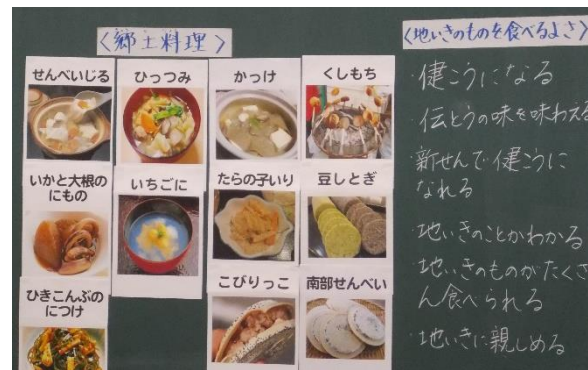 〈郷土料理〉
せんべいじる
ひっつみ
かっけ
くしもち
いかと大根の
にもの
いちごに
たらの子いり
豆しとぎ
ひきこんぶの
につけ
こびりっこ
南部せんべい
〈地いきのものを食べるよさ〉
・健こうになる
・伝とうの味を味わえる
・新せんで健こうに
なれる
・地いきのことがわかる
・地いきのものがたくさ
ん食べられる
・地いきに親しめる